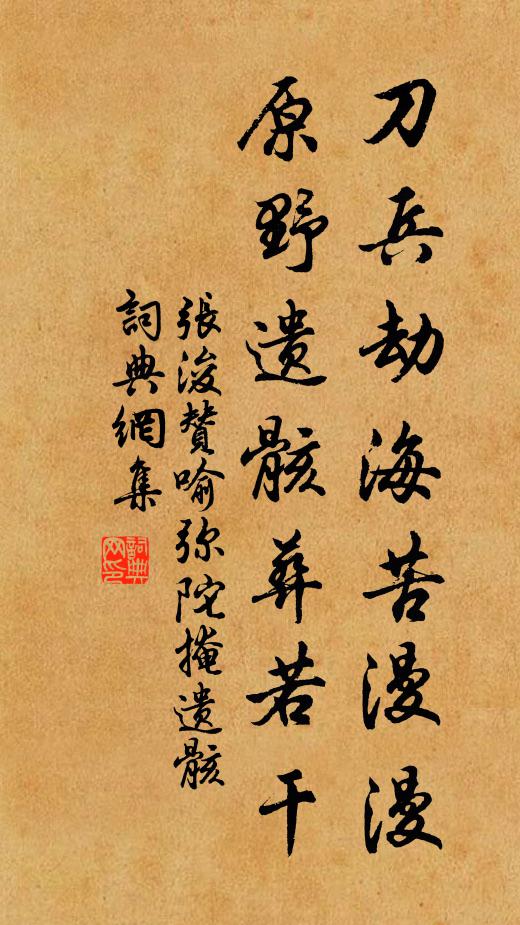 刀兵劫海苦漫漫
原野遗骸葬若干
張浚賛喻弥陀掩遗骸
詞典網集
詞典网印